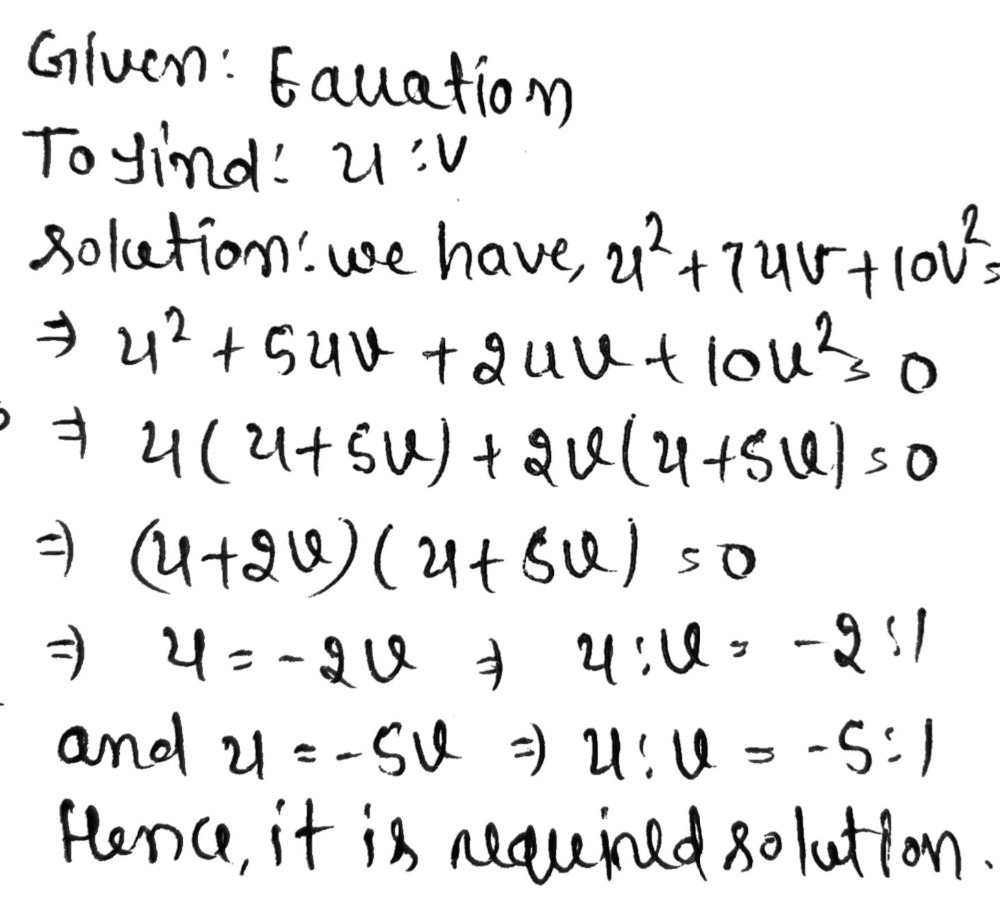 Given: Equation
To find: u:v
solution: we have, u² + 7uv + 10v² =
⇒ u² + 5uv + 2uv + 10v² = 0
⇒ u(u+5v) + 2v(u+5v) = 0
⇒ (u+2v)(u+5v) = 0
⇒ u = -2v ⇒ u:v = -2:1
and u = -5v ⇒ u:v = -5:1
Hence, it is required solution.